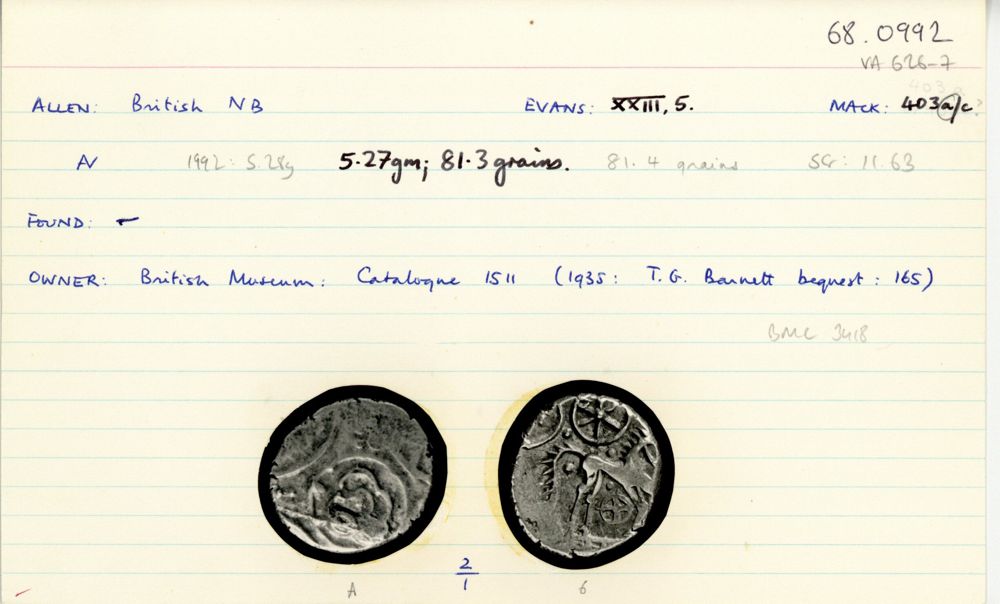 68.0992
VA 626-7
ALLEN: British NB EVANS: XXIII, 5. MACK: 403a/c
AV 1992: 5.28g 5.27gm; 81.3 grains. 81.4 grains SG: 11.63
FOUND: –
OWNER: British Museum: Catalogue 1511 (1935: T. G. Barnett bequest: 165)
BMC 3418
2/1
A 6